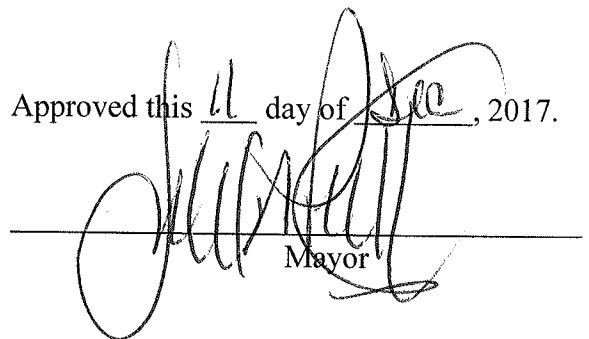 Approved this 11 day of Dec, 2017.
Mayor